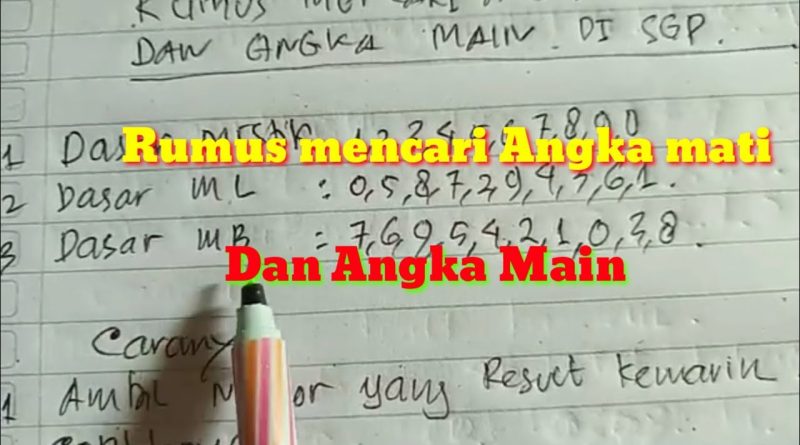 RUMUS MENCARI
DAN ANGKA MAIN. DI SGP.
1 Dasar Mistik 1,2,3,4,5,6,7,8,9,0
Rumus mencari Angka mati
2 Dasar ML : 0,5,8,7,2,9,4,3,6,1.
3 Dasar MB : 7,6,9,5,4,2,1,0,3,8.
Dan Angka Main
Carany
1 Ambil or yang Result kemarin